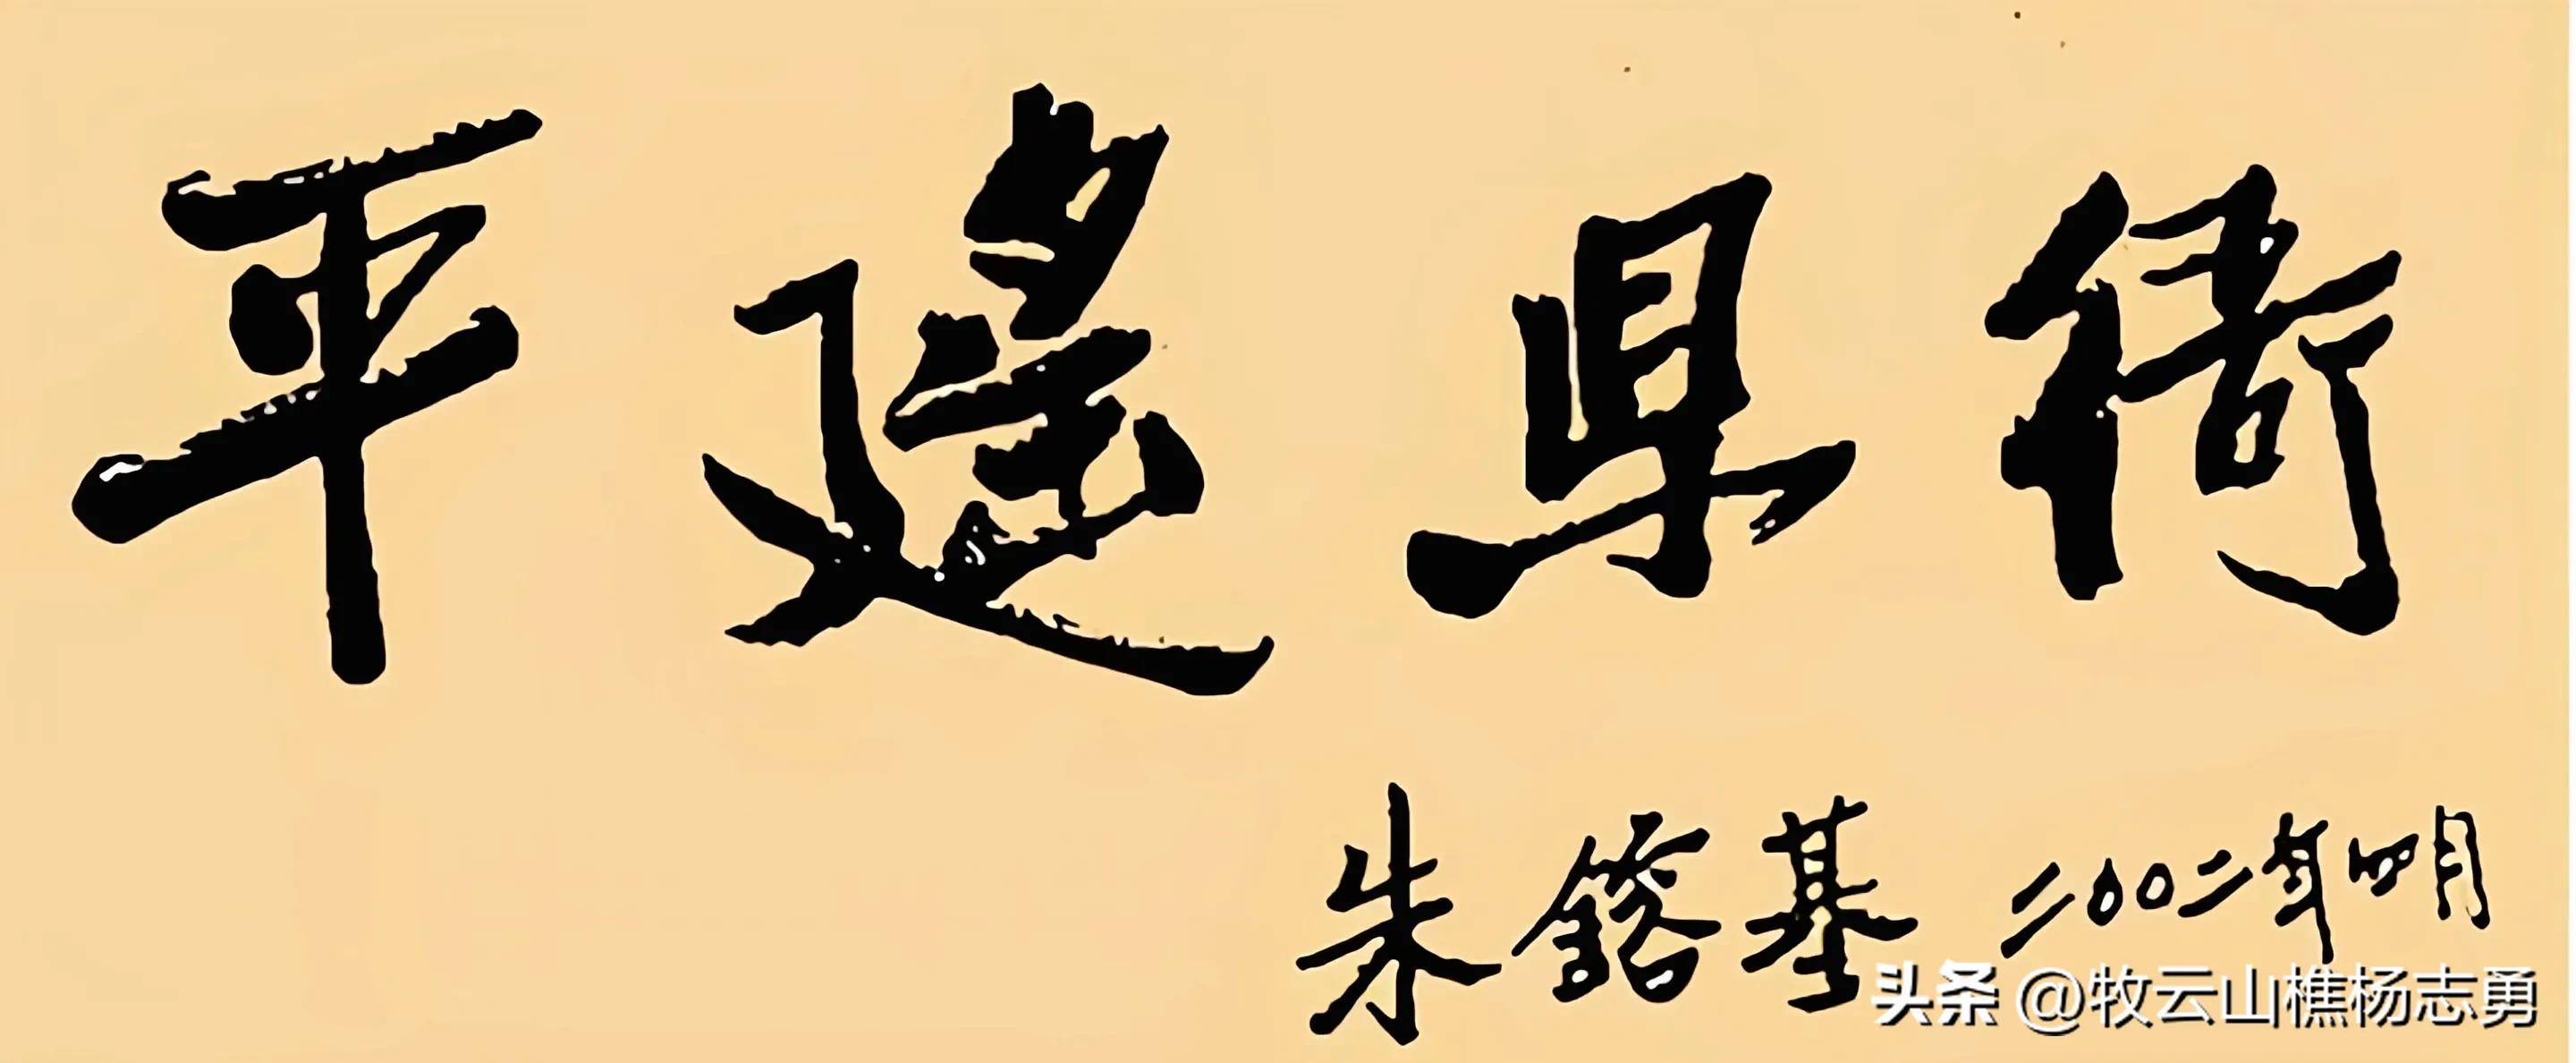 平遥県衙
朱镕基 二00二年四月
头条 @牧云山樵杨志勇